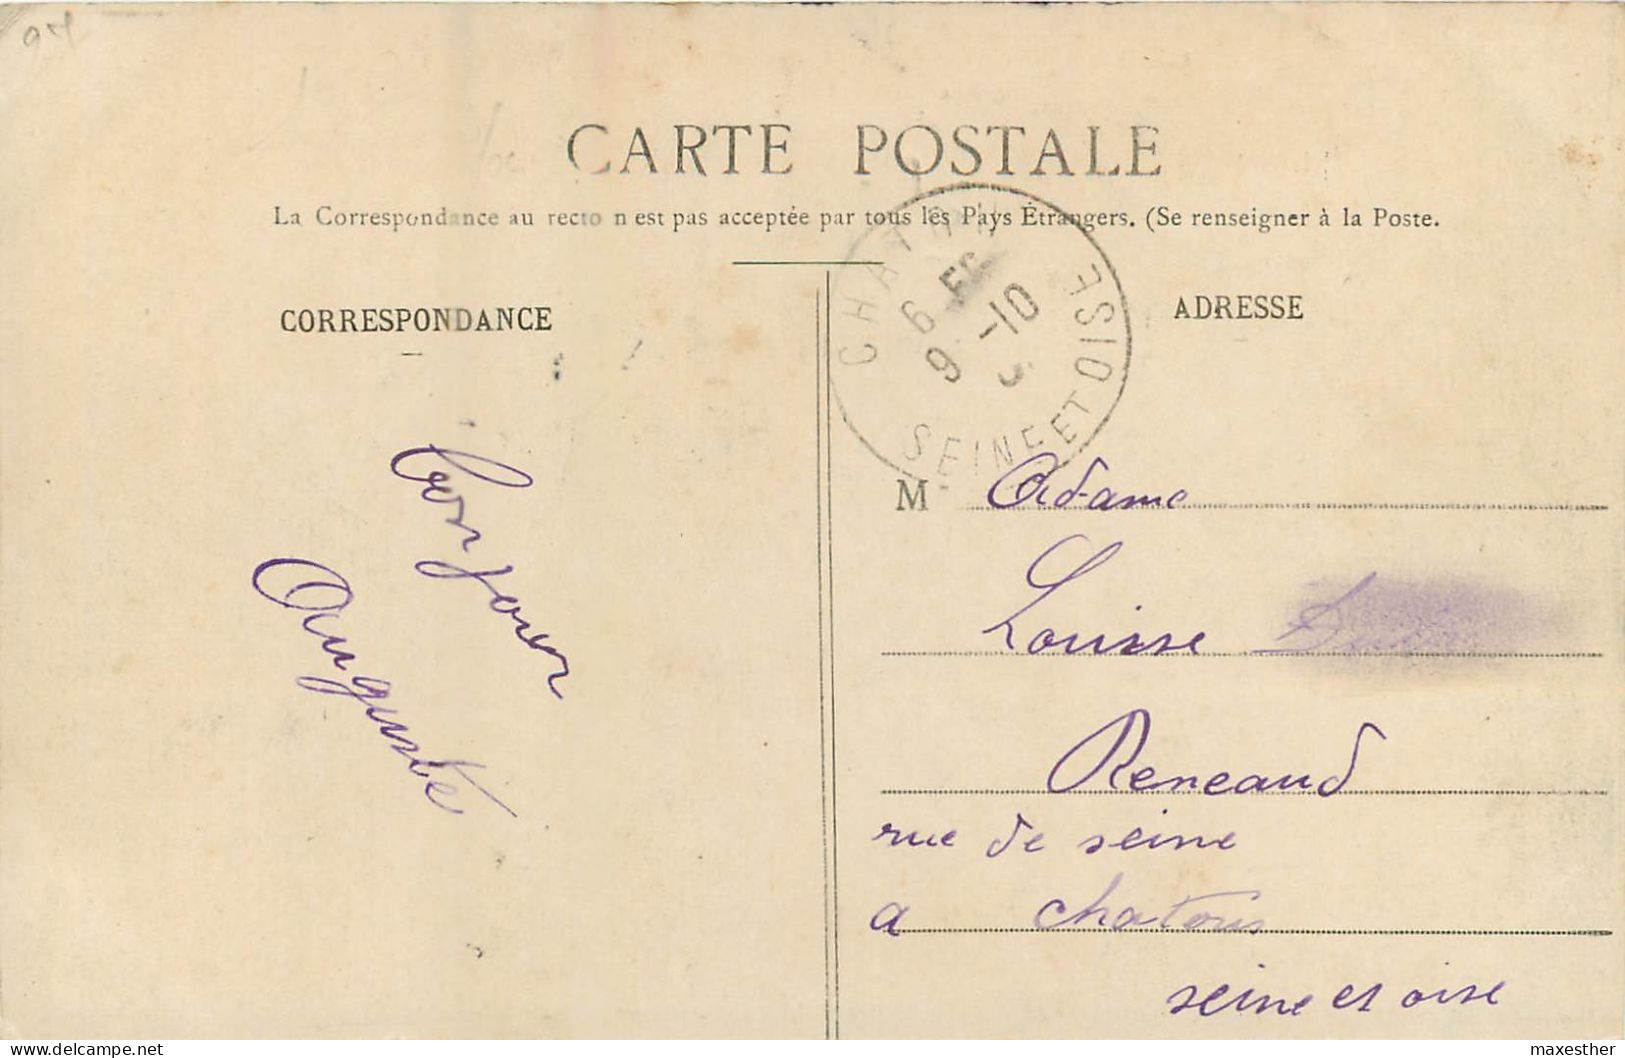 CARTE POSTALE
La Correspondance au recto n est pas acceptée par tous les Pays Étrangers. (Se renseigner à la Poste.
CORRESPONDANCE
ADRESSE
CHATOU
9 -10
SEINE ET OISE
Bonjour
Auguste
M Adame
Louisse
Reneaud
rue de seine
a chatous
seine et oise
maxesther